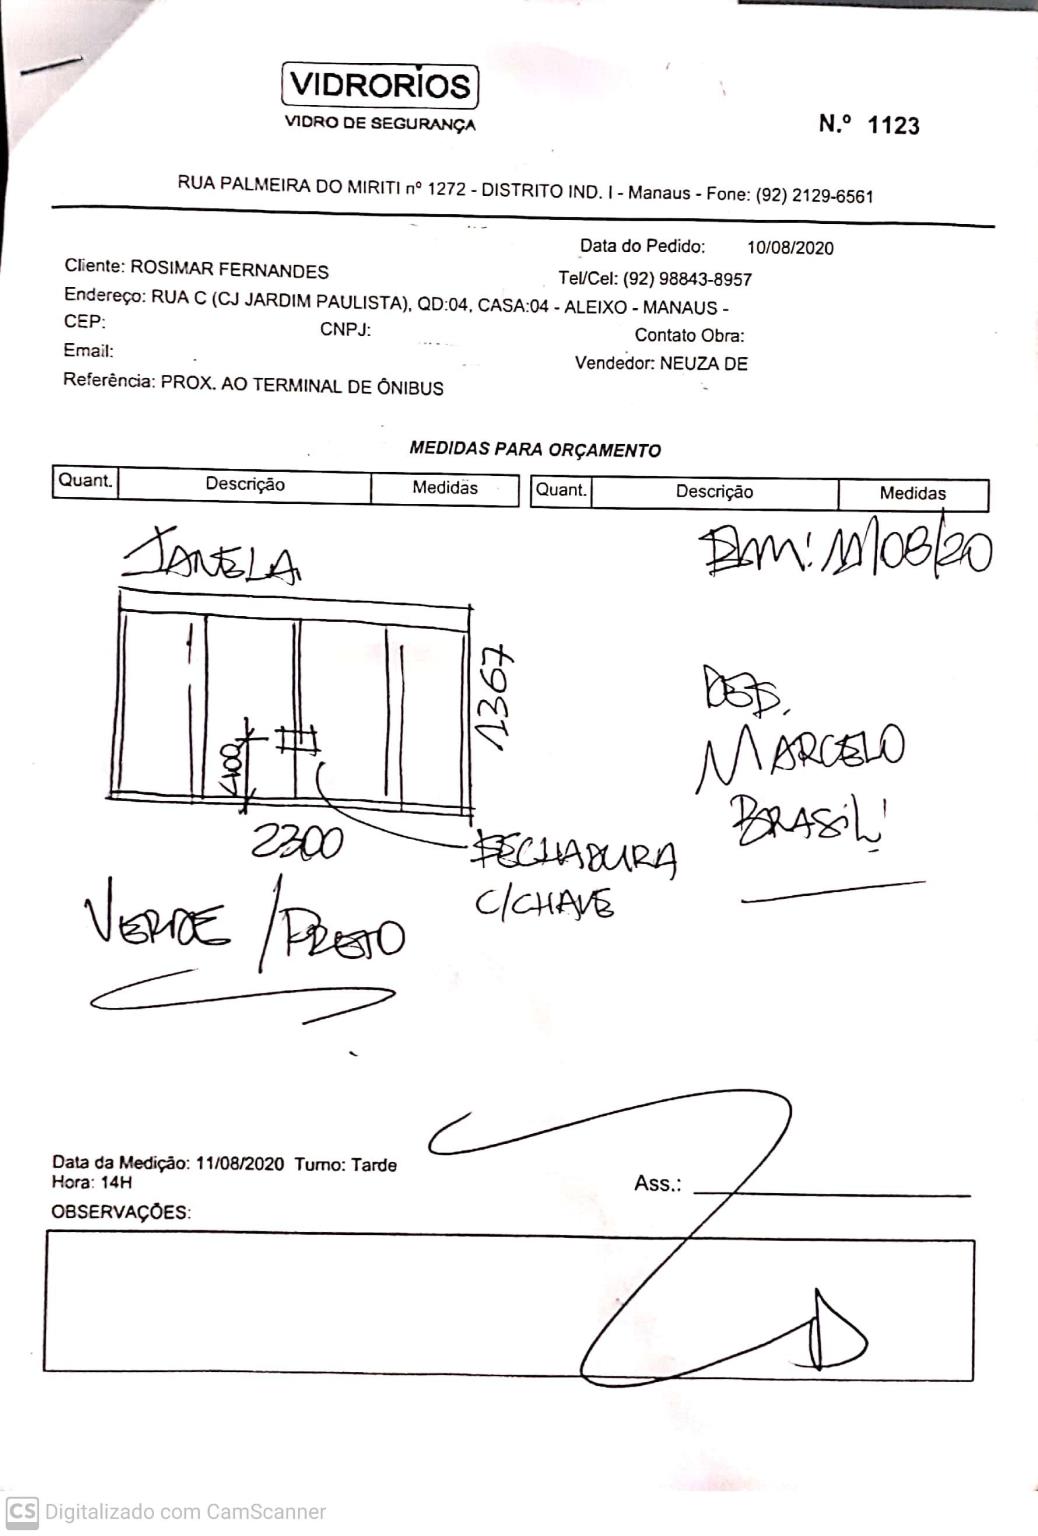 VIDRORIOS
VIDRO DE SEGURANÇA
N.º 1123
RUA PALMEIRA DO MIRITI nº 1272 - DISTRITO IND. I - Manaus - Fone: (92) 2129-6561
Data do Pedido: 10/08/2020
Cliente: ROSIMAR FERNANDES
Tel/Cel: (92) 98843-8957
Endereço: RUA C (CJ JARDIM PAULISTA), QD:04, CASA:04 - ALEIXO - MANAUS -
CEP: CNPJ: Contato Obra:
Email: Vendedor: NEUZA DE
Referência: PROX. AO TERMINAL DE ÔNIBUS
MEDIDAS PARA ORÇAMENTO
Quant. Descrição Medidas Quant. Descrição Medidas
JANELA
EM: 11/08/20
1367
400
2300
FECHADURA
C/CHAVE
VERDE / PRETO
MARCELO
BRASIL
Data da Medição: 11/08/2020 Turno: Tarde
Hora: 14H
Ass.:
OBSERVAÇÕES:
CS Digitalizado com CamScanner